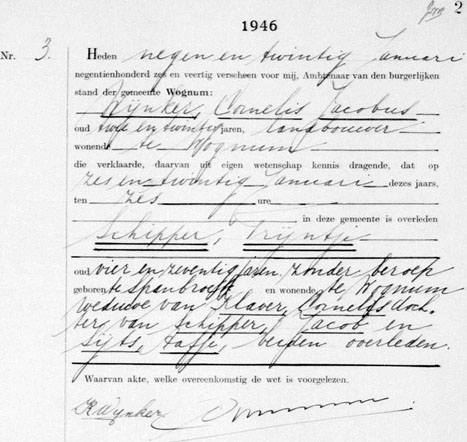 2
1946
Nr. 3. Heden negen en twintig Januari
negentienhonderd zes en veertig verscheen voor mij, Ambtenaar van den burgerlijken
stand der gemeente Wognum:
Wijnker, Cornelis Jacobus
oud twee en twintig jaren, landbouwer
wonende te Wognum
die verklaarde, daarvan uit eigen wetenschap kennis dragende, dat op
zes en twintig Januari dezes jaars,
ten zes ure
in deze gemeente is overleden
Schipper, Trijntje
oud vier en zeventig jaren, zonder beroep
geboren te Spanbroek en wonende te Wognum
weduwe van Klaver, Cornelis doch-
ter van Schipper, Jacob en
Sijts, Aafje, beiden overleden.
Waarvan akte, welke overeenkomstig de wet is voorgelezen.
Wijnker